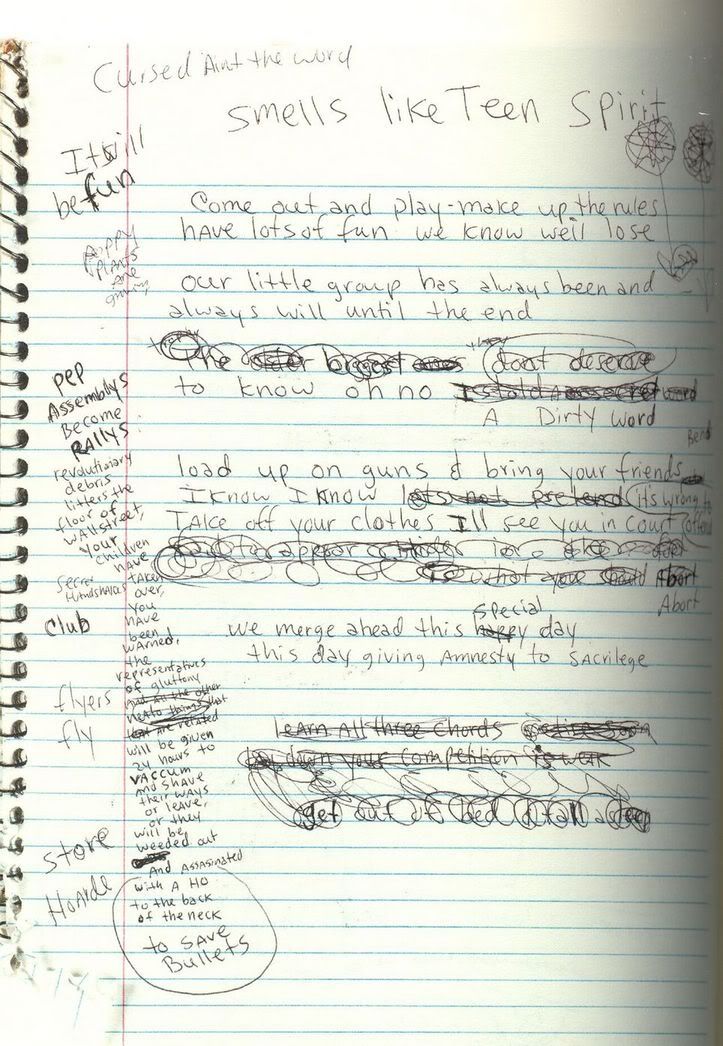 Cursed Aint the word
smells like Teen Spirit
It will
be fun
Come out and play-make up the rules
HAVE lots of fun we know we'll lose
poppy
plants
Are
our little group has always been and
always will until the end
The biggest dont deserve
to know oh no
A Dirty word
pep
Assemblys
Become
RAllys
Bend
load up on guns & bring your friends
I know I know lets not pretend its wrong to
TAke off your clothes Ill see you in court
revolutionary
debris
litters the
floor of
WAllstreet,
your
children
have
taken
over,
you
have
been
warned,
the
representatives
of gluttony
And All the other
that
are related
will be given
24 hours to
VACCUM
and shave
their ways
or leave,
or they
will be
weeded out
And Assasinated
with A HO
to the back
of the neck
to SAVE
Bullets
secret
club
is what you should Abort
Abort
special
we merge ahead this happy day
this day giving Amnesty to SAcrilege
flyers
fly
LeArn All three Chords
down your competition is weak
get out of bed
store
HoArde